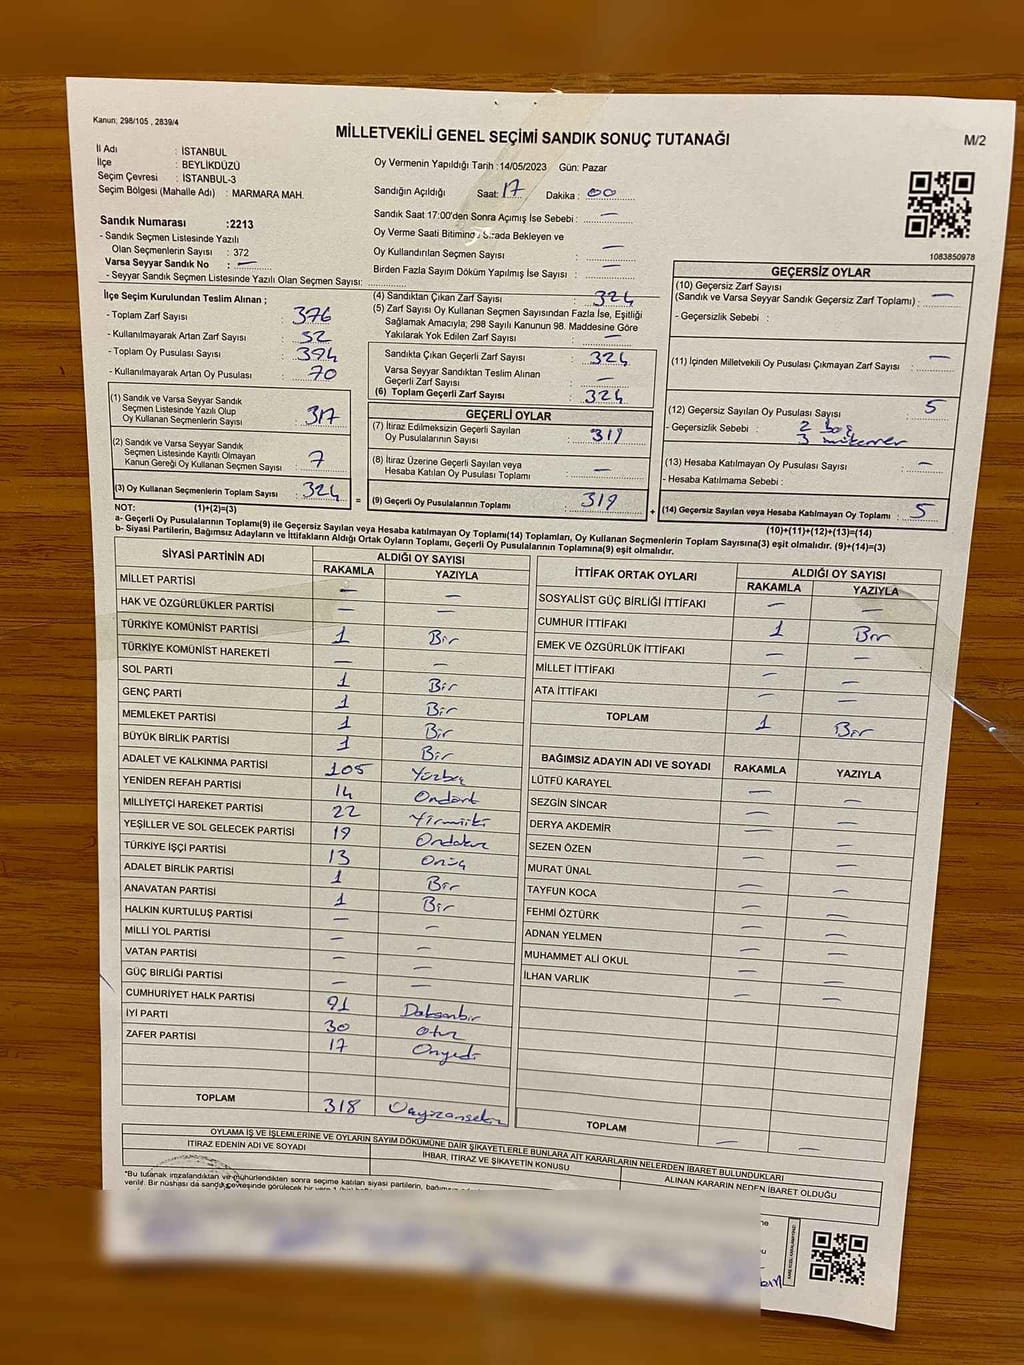 Kanun; 298/105 , 2839/4
MİLLETVEKİLİ GENEL SEÇİMİ SANDIK SONUÇ TUTANAĞI
M/2
İl Adı : İSTANBUL
İlçe : BEYLİKDÜZÜ
Seçim Çevresi : İSTANBUL-3
Seçim Bölgesi (Mahalle Adı) : MARMARA MAH.
Oy Vermenin Yapıldığı Tarih :14/05/2023 Gün: Pazar
Sandığın Açıldığı Saat: 17 Dakika : 00
Sandık Saat 17:00'den Sonra Açımış İse Sebebi : —
Oy Verme Saati Bitiminde Sırada Bekleyen ve
Oy Kullandırılan Seçmen Sayısı : —
Birden Fazla Sayım Döküm Yapılmış İse Sayısı : —
1083850978
Sandık Numarası :2213
- Sandık Seçmen Listesinde Yazılı
Olan Seçmenlerin Sayısı : 372
Varsa Seyyar Sandık No : —
- Seyyar Sandık Seçmen Listesinde Yazılı Olan Seçmen Sayısı:
İlçe Seçim Kurulundan Teslim Alınan ;
- Toplam Zarf Sayısı : 376
- Kullanılmayarak Artan Zarf Sayısı : 52
- Toplam Oy Pusulası Sayısı : 394
- Kullanılmayarak Artan Oy Pusulası : 70
(1) Sandık ve Varsa Seyyar Sandık
Seçmen Listesinde Yazılı Olup
Oy Kullanan Seçmenlerin Sayısı : 317
(2) Sandık ve Varsa Seyyar Sandık
Seçmen Listesinde Kayıtlı Olmayan
Kanun Gereği Oy Kullanan Seçmen Sayısı : 7
(3) Oy Kullanan Seçmenlerin Toplam Sayısı : 324
(4) Sandıktan Çıkan Zarf Sayısı : 324
(5) Zarf Sayısı Oy Kullanan Seçmen Sayısından Fazla İse, Eşitliği
Sağlamak Amacıyla; 298 Sayılı Kanunun 98. Maddesine Göre
Yakılarak Yok Edilen Zarf Sayısı : —
Sandıkta Çıkan Geçerli Zarf Sayısı : 324
Varsa Seyyar Sandıktan Teslim Alınan
Geçerli Zarf Sayısı : —
(6) Toplam Geçerli Zarf Sayısı : 324
GEÇERLİ OYLAR
(7) İtiraz Edilmeksizin Geçerli Sayılan
Oy Pusulalarının Sayısı : 319
(8) İtiraz Üzerine Geçerli Sayılan veya
Hesaba Katılan Oy Pusulası Toplamı : —
= (9) Geçerli Oy Pusulalarının Toplamı : 319 +
GEÇERSİZ OYLAR
(10) Geçersiz Zarf Sayısı
(Sandık ve Varsa Seyyar Sandık Geçersiz Zarf Toplamı) : —
- Geçersizlik Sebebi :
(11) İçinden Milletvekili Oy Pusulası Çıkmayan Zarf Sayısı : —
(12) Geçersiz Sayılan Oy Pusulası Sayısı : 5
- Geçersizlik Sebebi : 2 boş
3 mükerrer
(13) Hesaba Katılmayan Oy Pusulası Sayısı : —
- Hesaba Katılmama Sebebi :
(14) Geçersiz Sayılan veya Hesaba Katılmayan Oy Toplamı : 5
NOT: (1)+(2)=(3)
(10)+(11)+(12)+(13)=(14)
a- Geçerli Oy Pusulalarının Toplamı(9) ile Geçersiz Sayılan veya Hesaba katılmayan Oy Toplamı(14) Toplamları, Oy Kullanan Seçmenlerin Toplam Sayısına(3) eşit olmalıdır. (9)+(14)=(3)
b- Siyasi Partilerin, Bağımsız Adayların ve İttifakların Aldığı Ortak Oyların Toplamı, Geçerli Oy Pusulalarının Toplamına(9) eşit olmalıdır.
SİYASİ PARTİNİN ADI ALDIĞI OY SAYISI
RAKAMLA YAZIYLA
MİLLET PARTİSİ — —
HAK VE ÖZGÜRLÜKLER PARTİSİ — —
TÜRKİYE KOMÜNİST PARTİSİ 1 Bir
TÜRKİYE KOMÜNİST HAREKETİ — —
SOL PARTİ 1 Bir
GENÇ PARTİ 1 Bir
MEMLEKET PARTİSİ 1 Bir
BÜYÜK BİRLİK PARTİSİ 1 Bir
ADALET VE KALKINMA PARTİSİ 105 Yüzbeş
YENİDEN REFAH PARTİSİ 14 Ondört
MİLLİYETÇİ HAREKET PARTİSİ 22 Yirmiiki
YEŞİLLER VE SOL GELECEK PARTİSİ 19 Ondokuz
TÜRKİYE İŞÇİ PARTİSİ 13 Onüç
ADALET BİRLİK PARTİSİ 1 Bir
ANAVATAN PARTİSİ 1 Bir
HALKIN KURTULUŞ PARTİSİ — —
MİLLİ YOL PARTİSİ — —
VATAN PARTİSİ — —
GÜÇ BİRLİĞİ PARTİSİ — —
CUMHURİYET HALK PARTİSİ 91 Doksanbir
İYİ PARTİ 30 Otuz
ZAFER PARTİSİ 17 Onyedi
TOPLAM 318 Üçyüzonsekiz
İTTİFAK ORTAK OYLARI ALDIĞI OY SAYISI
RAKAMLA YAZIYLA
SOSYALİST GÜÇ BİRLİĞİ İTTİFAKI — —
CUMHUR İTTİFAKI 1 Bir
EMEK VE ÖZGÜRLÜK İTTİFAKI — —
MİLLET İTTİFAKI — —
ATA İTTİFAKI — —
TOPLAM 1 Bir
BAĞIMSIZ ADAYIN ADI VE SOYADI RAKAMLA YAZIYLA
LÜTFÜ KARAYEL — —
SEZGİN SİNCAR — —
DERYA AKDEMİR — —
SEZEN ÖZEN — —
MURAT ÜNAL — —
TAYFUN KOCA — —
FEHMİ ÖZTÜRK — —
ADNAN YELMEN — —
MUHAMMET ALİ OKUL — —
İLHAN VARLIK — —
TOPLAM — —
OYLAMA İŞ VE İŞLEMLERİNE VE OYLARIN SAYIM DÖKÜMÜNE DAİR ŞİKAYETLERLE BUNLARA AİT KARARLARIN NELERDEN İBARET BULUNDUKLARI
İTİRAZ EDENİN ADI VE SOYADI İHBAR, İTİRAZ VE ŞİKAYETİN KONUSU ALINAN KARARIN NEDEN İBARET OLDUĞU
"Bu tutanak imzalandıktan ve mühürlendikten sonra seçime katılan siyasi partilerin, bağımsız